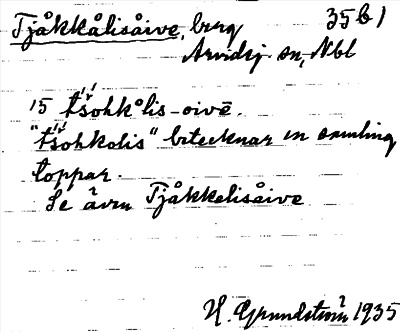 Tjåkkålisåive, berg 35b1
Arvidsj sn, Nbl
15 tšohkålis-oivē.
"tšohkolis" betecknar en samling
toppar.
Se även Tjåkkelisåive
H. Grundström 1935